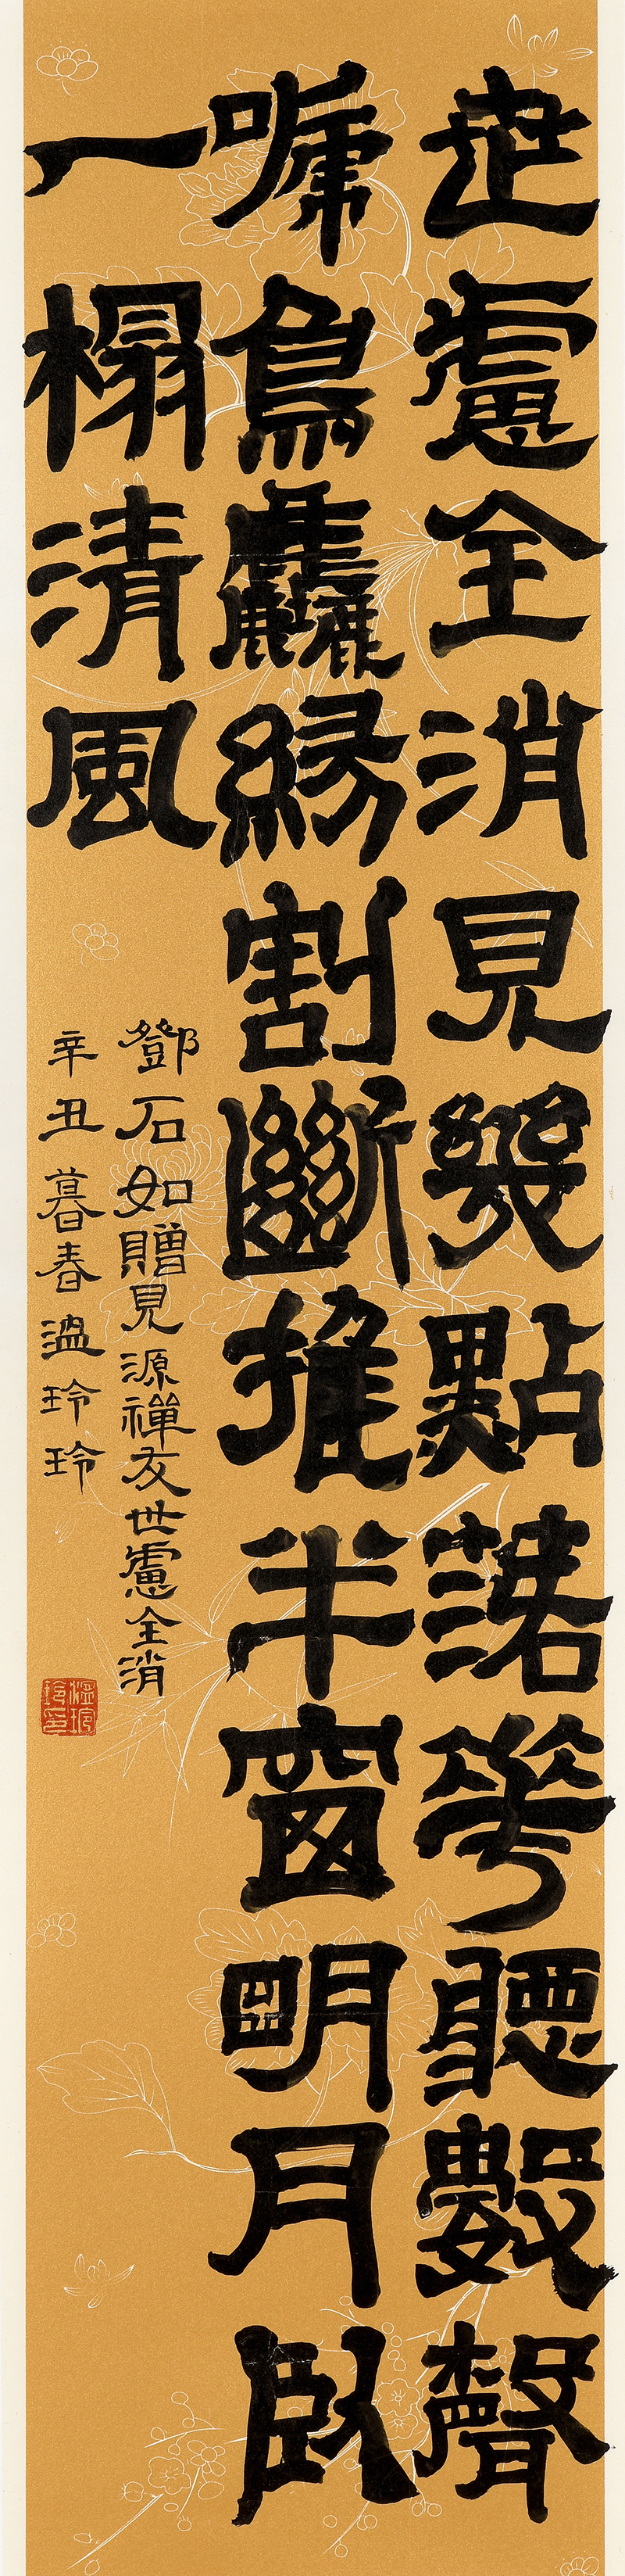 世慮全消見幾點落花聽數聲
啼鳥塵緣割斷推半窗明月臥
一榻清風
鄧石如贈見源禪友世慮全消
辛丑暮春溫玲玲
溫玲玲印